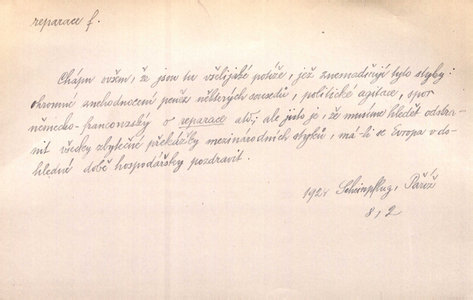 reparace f.
Chápu ovšem, že jsou tu všelijaké potíže, jež znemožňují tyto styky:
ohromné znehodnocení peněz některých sousedů, politické agitace, spor
německo-francouzský o reparace atd.; ale jisto je, že musíme hledět odstra-
nit všecky zbytečné překážky mezinárodních styků, má-li se Evropa v do-
hledné době hospodářsky pozdravit.
192 Scheinpflug, Paříž
8, 2